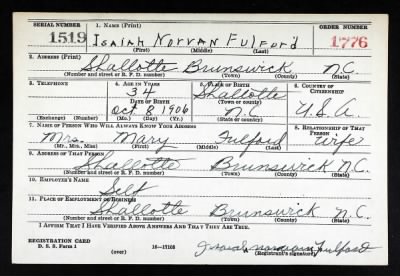 SERIAL NUMBER 1. NAME (Print) ORDER NUMBER
1519 Isaiah Norvan Fulford 1776
(First) (Middle) (Last)
2. ADDRESS (Print)
Shallotte Brunswick N.C.
(Number and street or R. F. D. number) (Town) (County) (State)
3. TELEPHONE 4. AGE IN YEARS 5. PLACE OF BIRTH 6. COUNTRY OF CITIZENSHIP
34 Shallotte
DATE OF BIRTH (Town or county)
Oct 8 1906 N.C. U.S.A.
(Exchange) (No.) (Mo.) (Day) (Yr.) (State or country)
7. NAME OF PERSON WHO WILL ALWAYS KNOW YOUR ADDRESS 8. RELATIONSHIP OF THAT PERSON
Mrs. Mary Fulford Wife
(Mr., Mrs., Miss) (First) (Middle) (Last)
9. ADDRESS OF THAT PERSON
Shallotte Brunswick N.C.
(Number and street or R. F. D. number) (Town) (County) (State)
10. EMPLOYER'S NAME
Self
11. PLACE OF EMPLOYMENT OR BUSINESS
Shallotte Brunswick N.C.
(Number and street or R. F. D. number) (Town) (County) (State)
I AFFIRM THAT I HAVE VERIFIED ABOVE ANSWERS AND THAT THEY ARE TRUE.
REGISTRATION CARD
D. S. S. Form 1 (over) 16—17105 Isaiah Norvan Fulford
(Registrant's signature)